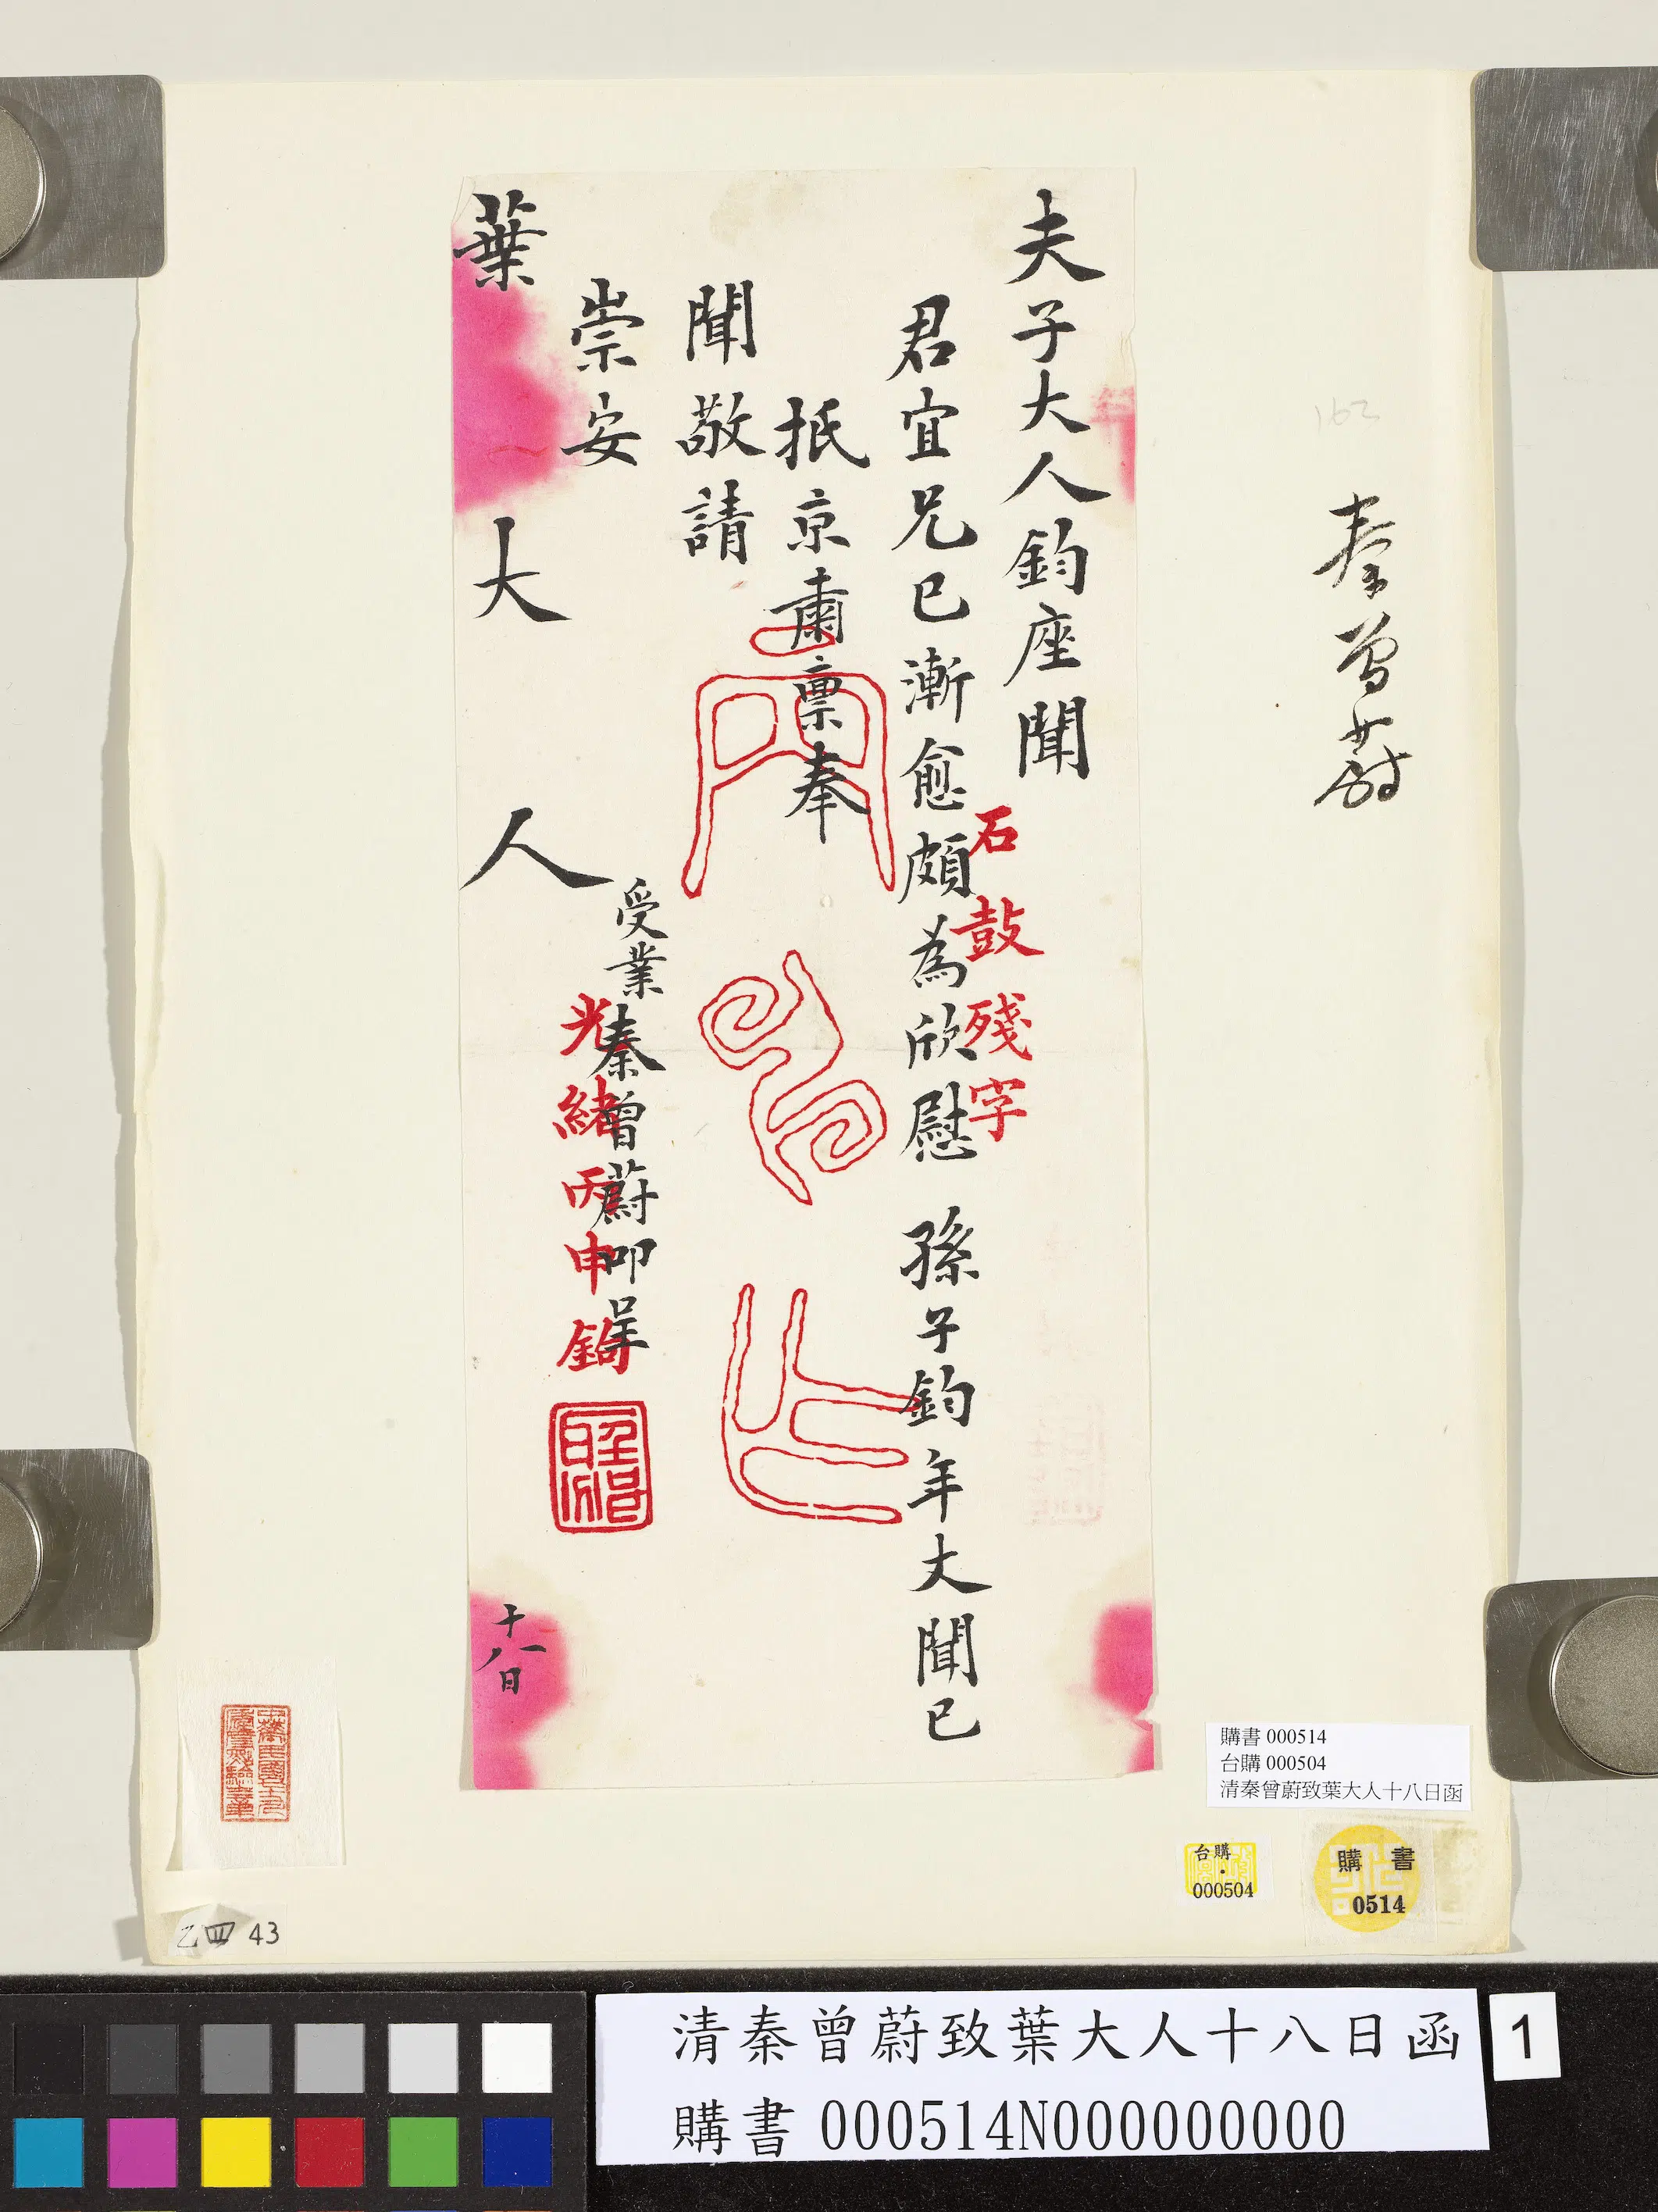 秦曾蔚
夫子大人鈞座聞
君宜兄已漸愈頗為欣慰 孫子鈞年丈聞已
抵京肅稟奉
聞敬請
崇安
受業秦曾蔚叩呈
葉大人
十八日
石鼓殘字
光緒丙申鉤
購書 000514
台購 000504
清秦曾蔚致葉大人十八日函
台購
000504
購書
0514
乙四 43
清秦曾蔚致葉大人十八日函
購書 000514N000000000
1